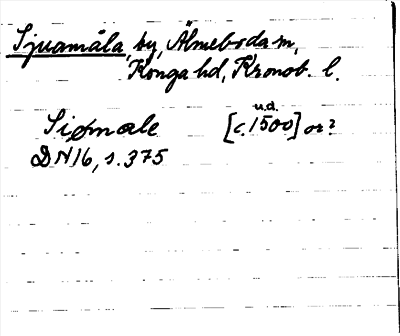 Sjuamåla, by, Älmeboda sn,
Konga hd, Kronob. l.
u.d.
Siømale [c. 1500] or?
DN 16, s. 375